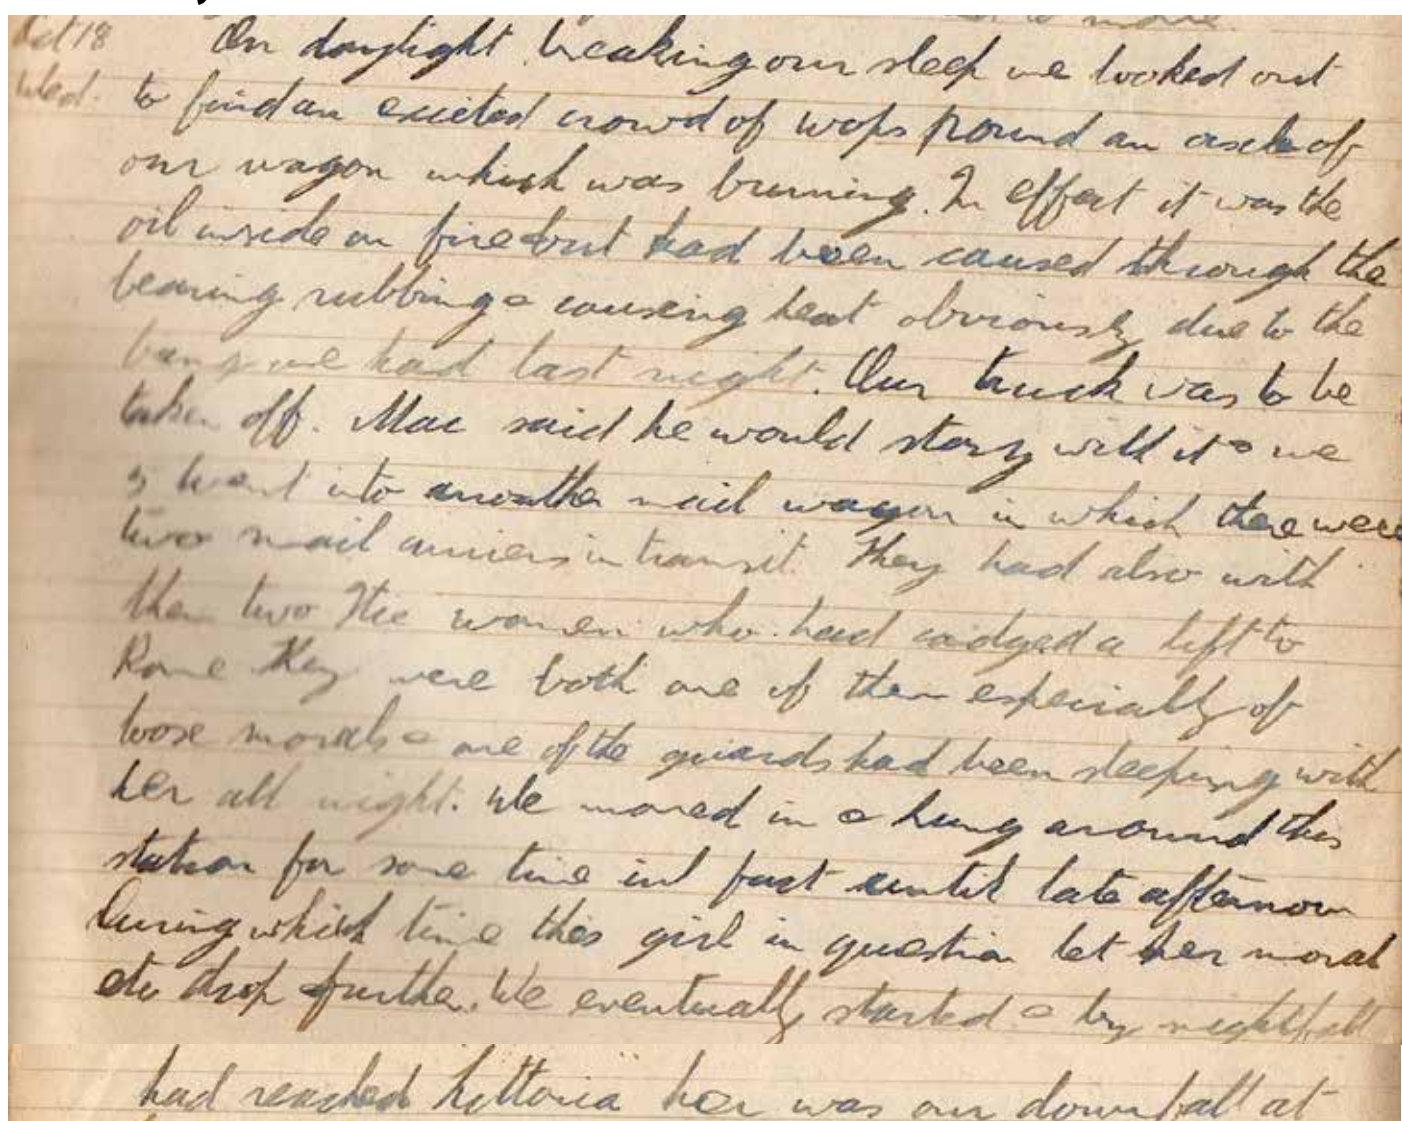 Oct 18 On daylight breaking our sleep we looked out
Wed. to find an excieted crowd of wops round an axle of
our wagon which was burning. In effect it was the
oil inside on fire but had been caused through the
bearing rubbing & causing heat obviously due to the
bang we had last night. Our truck was to be
taken off. Mac said he would stay with it & we
3 went into another mail wagon in which there were
two mail curriers in transit. They had also with
them two Itie women who had cadged a lift to
Rome they were both one of them especially of
loose morals & one of the guards had been sleeping with
her all night. We moved in & hung around this
station for some time in fact until late afternoon
During which time this girl in question let her moral
etc drop further. We eventually started & by nightfall
had reached her was our downfall at